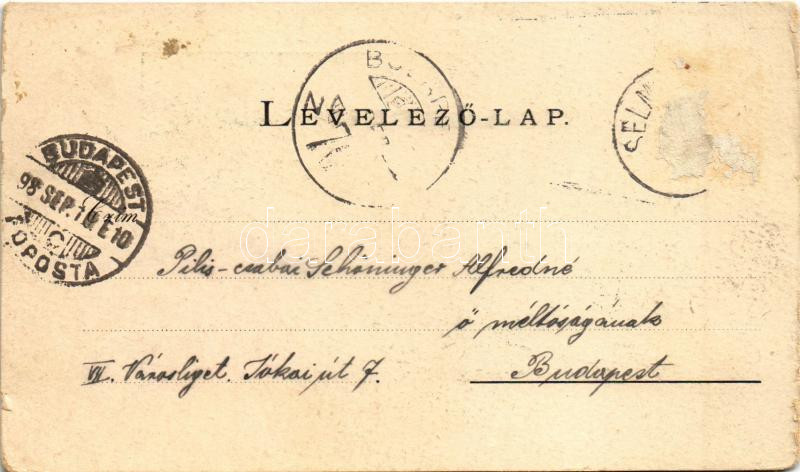 LEVELEZŐ-LAP.
BUDAPEST
98 SEP. 10 E 10
FŐPOSTA
SELM
Czím
darabanth
Pilis-csabai Schöninger Alfredné
ő méltóságának
VII. Városliget. Jókai út 7.
Budapest